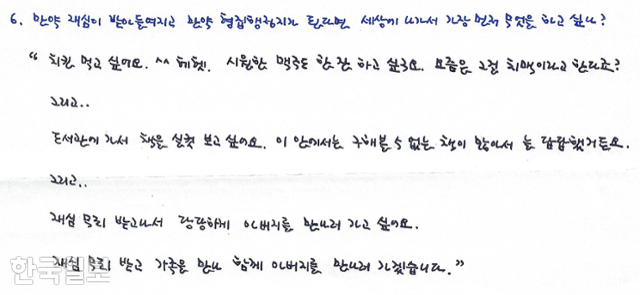 6. 만약 재심이 받아들여지고 만약 형집행정지가 된다면 세상에 나가서 가장 먼저 무엇을 하고 싶나?
“ 치킨 먹고 싶어요. ^^ 헤헷. 시원한 맥주도 한 잔 하고 싶구요. 요즘은 그걸 치맥이라고 한다죠?
그리고..
도서관에 가서 책을 실컷 보고 싶어요. 이 안에서는 구해볼 수 없는 책이 많아서 늘 답답했거든요.
그리고..
재심 무죄 받고나서 당당하게 아버지를 만나러 가고 싶어요.
재심 무죄 받고 가족을 만나 함께 아버지를 만나러 가겠습니다.”
한국일보